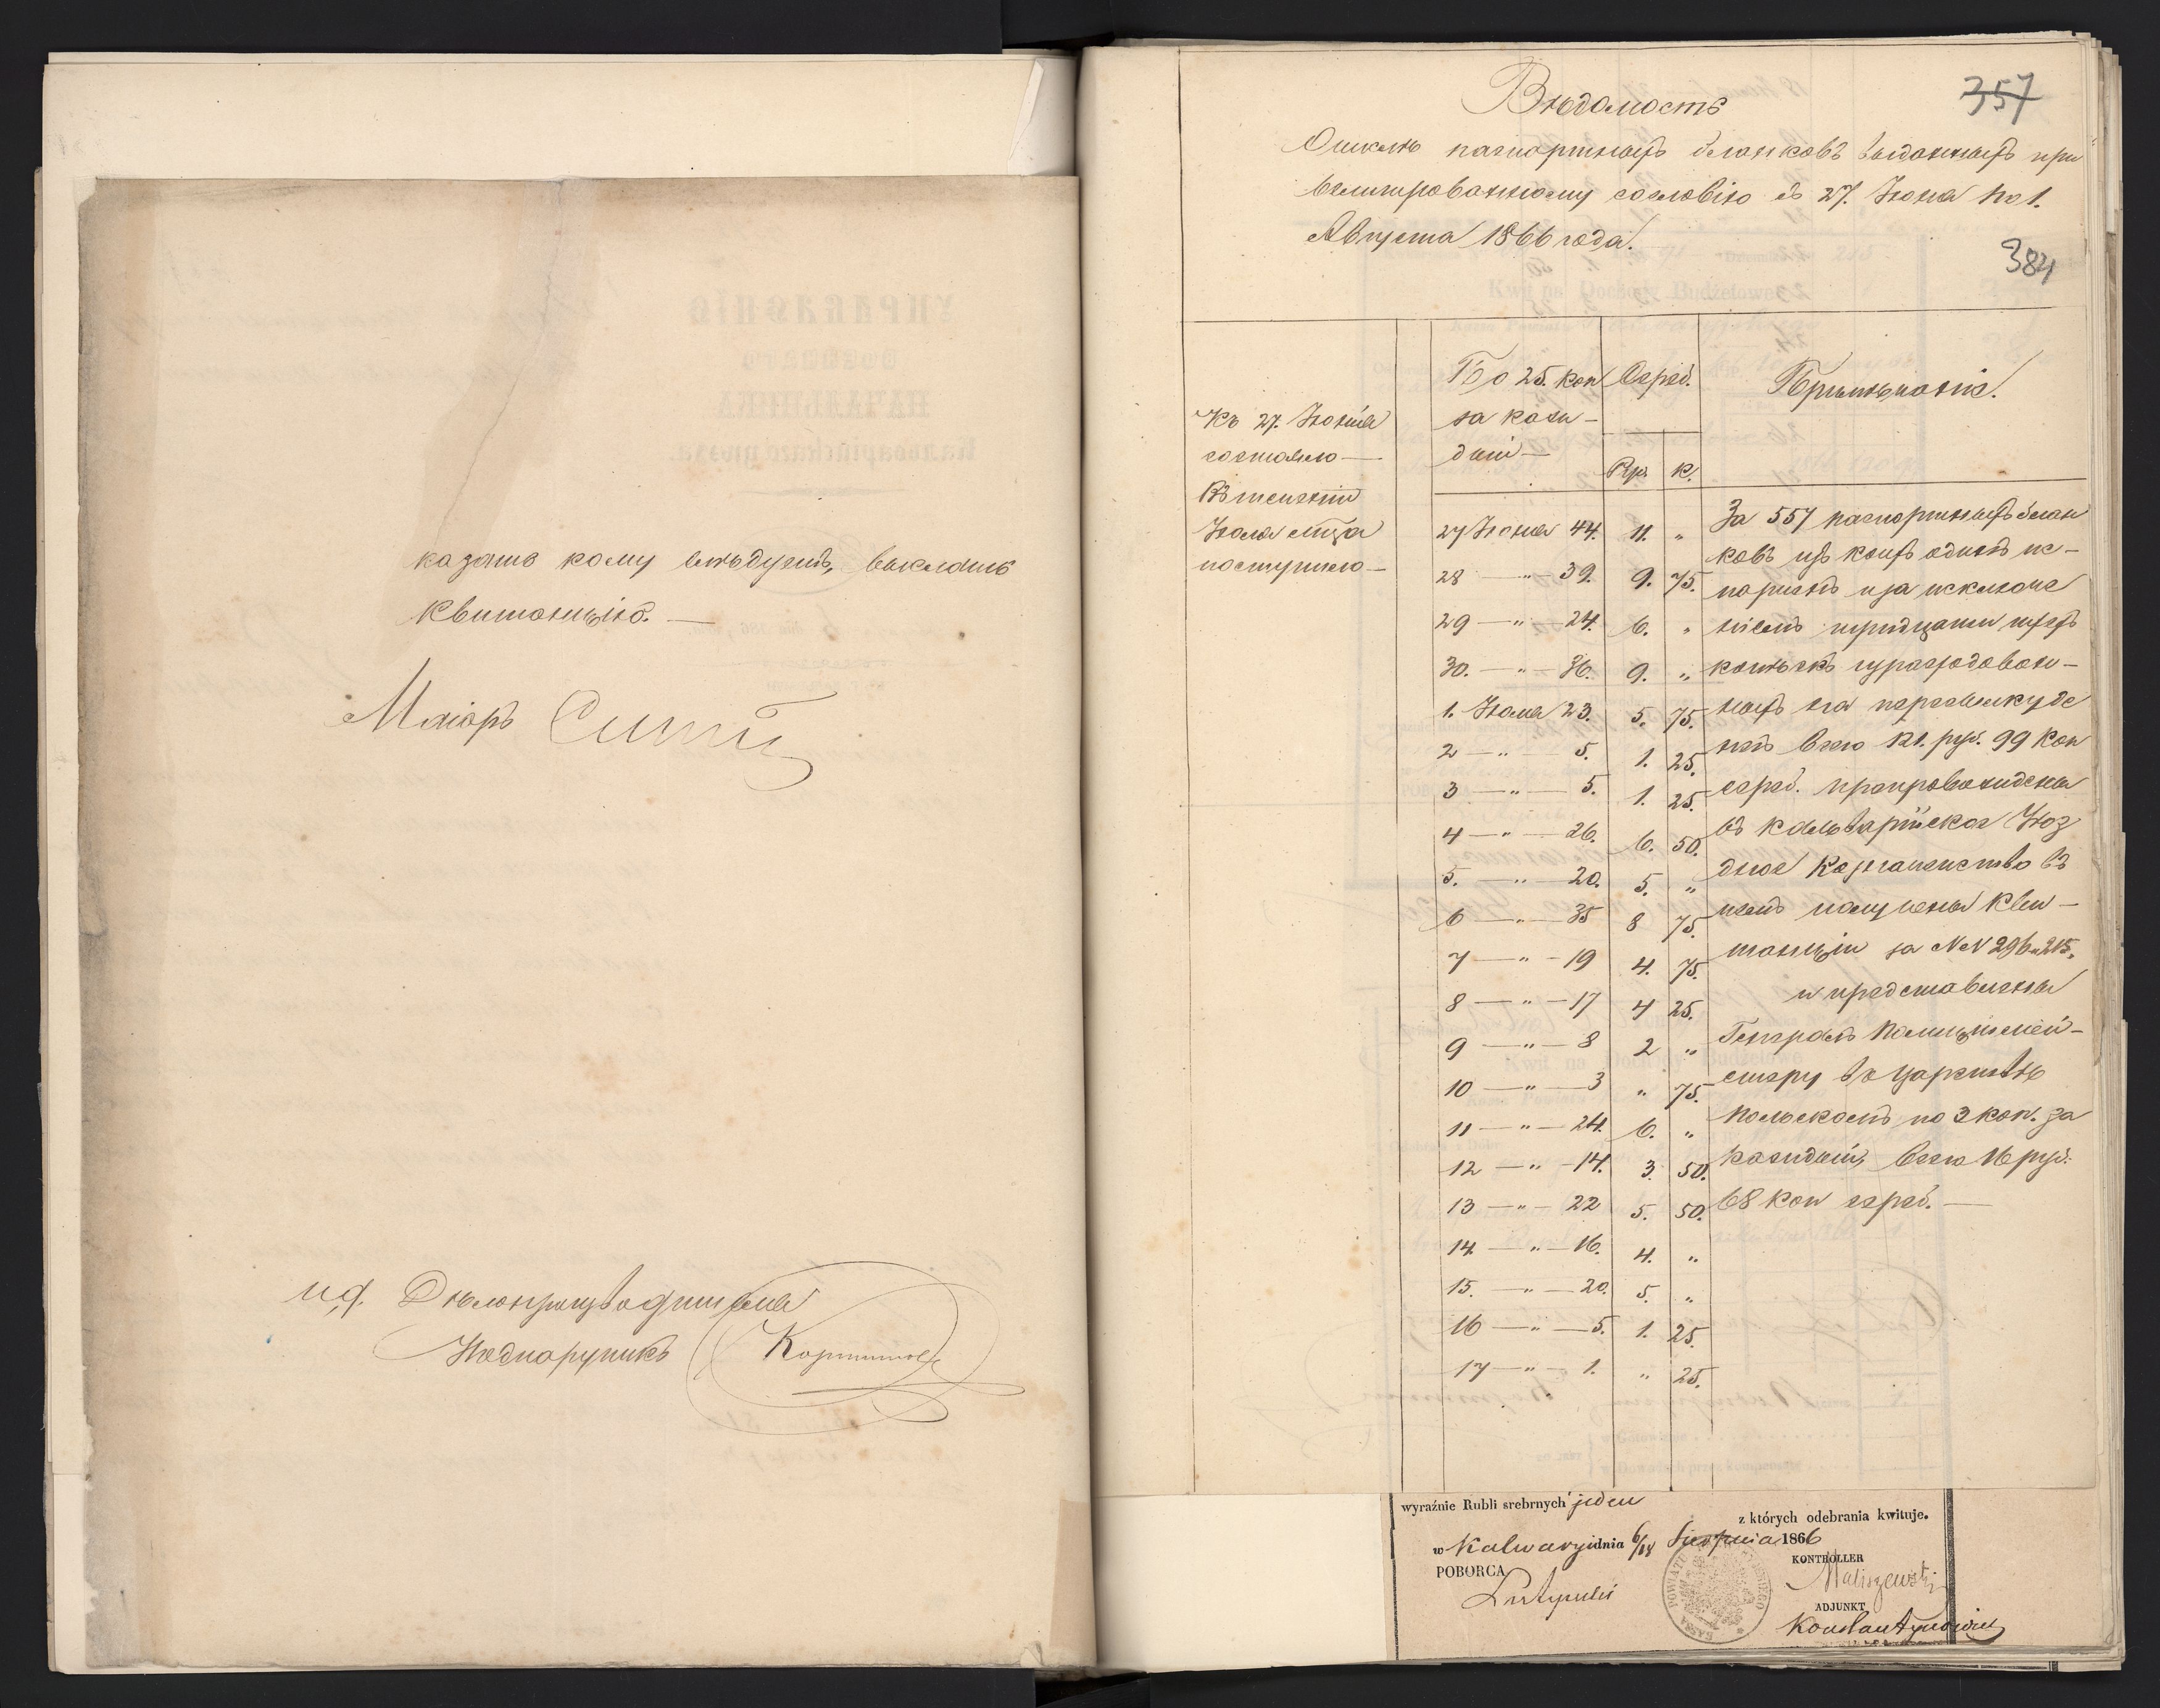 казать кому слѣдуетъ, выслать
квитанцію. —
Маіоръ
и.д. Дѣлопроизводителя
Подпоручикъ
357
Вѣдомость
О числѣ паспортныхъ бланковъ выданныхъ при
вилигированному сословію съ 27. Іюня по 1.
Августа 1866 года.
384
Къ 27. Іюня
состояло —
Въ теченіи
Іюля м-ца
поступило —
По 25. коп
за каж-
дый —
Сереб.
Рр. К.
Примѣчаніе.
27 Іюня 44. 11. "
28 — " — 39. 9. 75.
29 — " — 24. 6. "
30. — " — 36. 9. "
1. Іюля 23. 5. 75.
2 — " — 5. 1. 25.
3 — " — 5. 1. 25.
4 — " — 26. 6. 50.
5. — " — 20. 5. "
6 — " — 35 8 75.
7 — " — 19 4. 75.
8 — " — 17 4 25.
9 — " — 8 2 "
10 — " — 3 " 75.
11 — " — 24. 6. "
12 — " — 14. 3. 50.
13 — " — 22 5. 50.
14. — " — 16. 4. "
15. — " — 20. 5. "
16 — " — 5. 1. 25.
17 — " — 1. " 25.
За 557 паспортныхъ блан
ковъ изъ коихъ одинъ ис-
порченъ и за исключе
ніемъ тридцати трехъ
копѣекъ израсходован-
ныхъ на пересылку де
негъ всего 121. руб. 99 коп
сереб. препровождены
въ Кальварійское Уѣз
дное Казначейство въ
чемъ получены кви-
танціи за NN 296 и 215.
и представлены
Генералъ Полиціймей-
стеру въ Царствѣ
Польскомъ по 3 коп. за
каждый, всего 16 руб.
68 коп сереб. —
wyraźnie Rubli srebrnych jeden
z których odebrania kwituje.
w Kalwaryi dnia 6/18 Sierpnia 1866
POBORCA
KONTROLLER
Maliszewski
ADJUNKT
Konstantynowicz